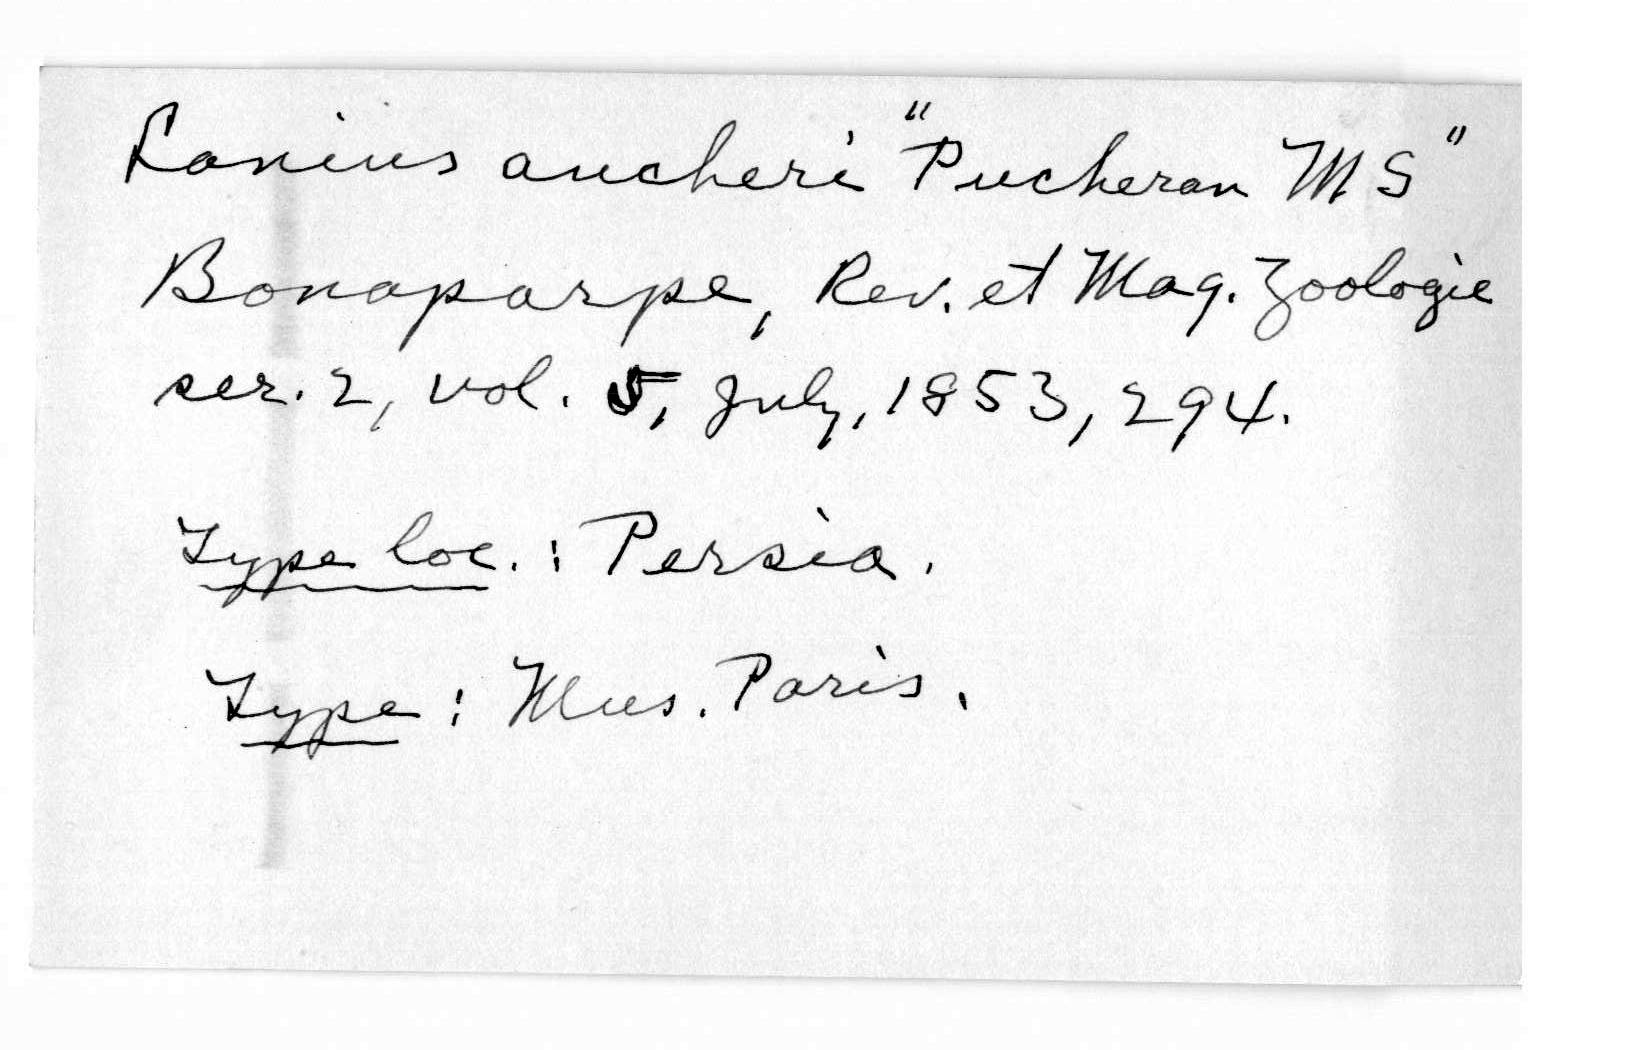 Lanius aucheri "Pucheran MS"
Bonaparpe, Rev. et Mag. Zoologie
ser. 2, vol. 5, July, 1853, 294.
Type loc. : Persia.
Type : Mus. Paris.